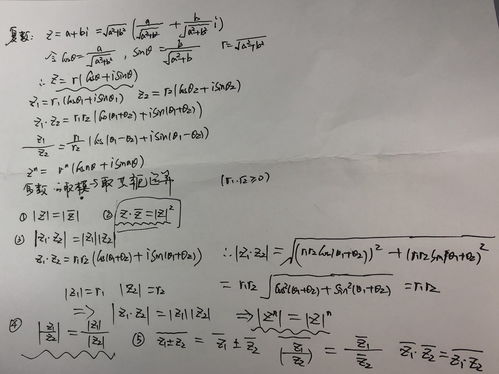 复数: z = a+bi = √(a²+b²) (a/√(a²+b²) + b/√(a²+b²) i)
令 cosθ = a/√(a²+b²) , sinθ = b/√(a²+b²)   r = √(a²+b²)
∴ z = r(cosθ + isinθ)
z₁ = r₁(cosθ₁+isinθ₁)  z₂ = r₂(cosθ₂+isinθ₂)
z₁·z₂ = r₁r₂(cos(θ₁+θ₂)+isin(θ₁+θ₂))
z₁/z₂ = r₁/r₂ (cos(θ₁-θ₂)+isin(θ₁-θ₂))
zⁿ = rⁿ(cosnθ+isinnθ)
复数的取模与取共轭运算  (r₁.r₂≥0)
① |z| = |z̅|  ② z·z̅ = |z|²
③ |z₁·z₂| = |z₁||z₂|
z₁·z₂ = r₁r₂(cos(θ₁+θ₂)+isin(θ₁+θ₂))  ∴|z₁·z₂| = √((r₁r₂cos(θ₁+θ₂))² + (r₁r₂sin(θ₁+θ₂))²)
|z₁| = r₁  |z₂| = r₂  = r₁r₂ √(cos²(θ₁+θ₂)+sin²(θ₁+θ₂)) = r₁r₂
=> |z₁·z₂| = |z₁||z₂|  => |zⁿ| = |z|ⁿ
④ |z₁/z₂| = |z₁|/|z₂|  ⑤ \overline{z₁±z₂} = \overline{z₁} ± \overline{z₂}  \overline{(z₁/z₂)} = \overline{z₁}/\overline{z₂}  \overline{z₁}·\overline{z₂} = \overline{z₁·z₂}